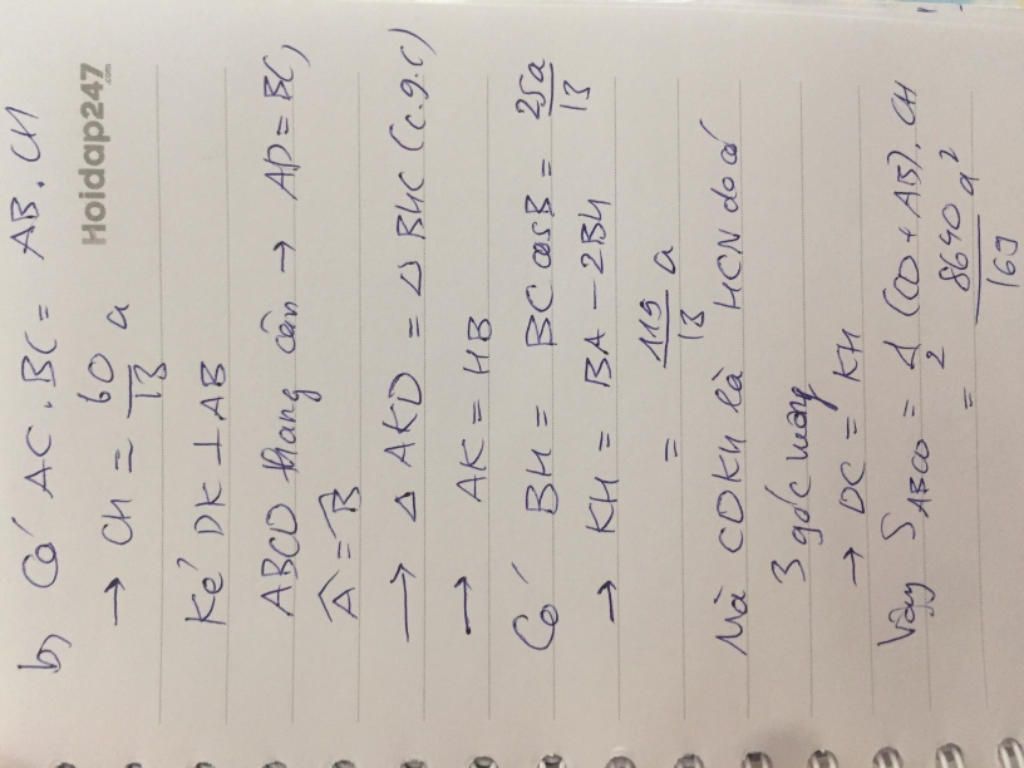 b, Có AC.BC = AB.CH
Hoidap247.com
→ CH = 60/13 a
Kẻ DK ⊥ AB
ABCD thang cân → AD = BC,
Â = B̂
→ Δ AKD = Δ BHC (c.g.c)
→ AK = HB
Có BH = BC cosB = 25a/13
→ KH = BA - 2BH
= 119/13 a
Mà CDKH là HCN do có
3 góc vuông
→ DC = KH
Vậy S_ABCD = 1/2 (CD + AB).CH
= 8640/169 a²